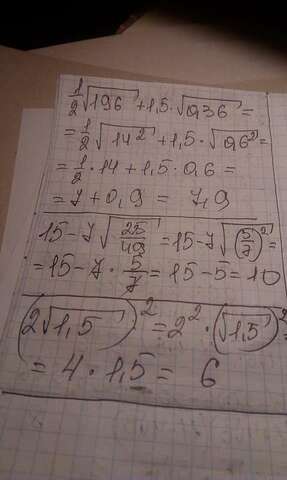 1/2√196 + 1,5 · √0,36 =
= 1/2 √14² + 1,5 · √0,6² =
= 1/2 · 14 + 1,5 · 0,6 =
= 7 + 0,9 = 7,9
15 - 7 √25/49 = 15 - 7 √(5/7)² =
= 15 - 7 · 5/7 = 15 - 5 = 10
(2√1,5)² = 2² · (√1,5)² =
= 4 · 1,5 = 6